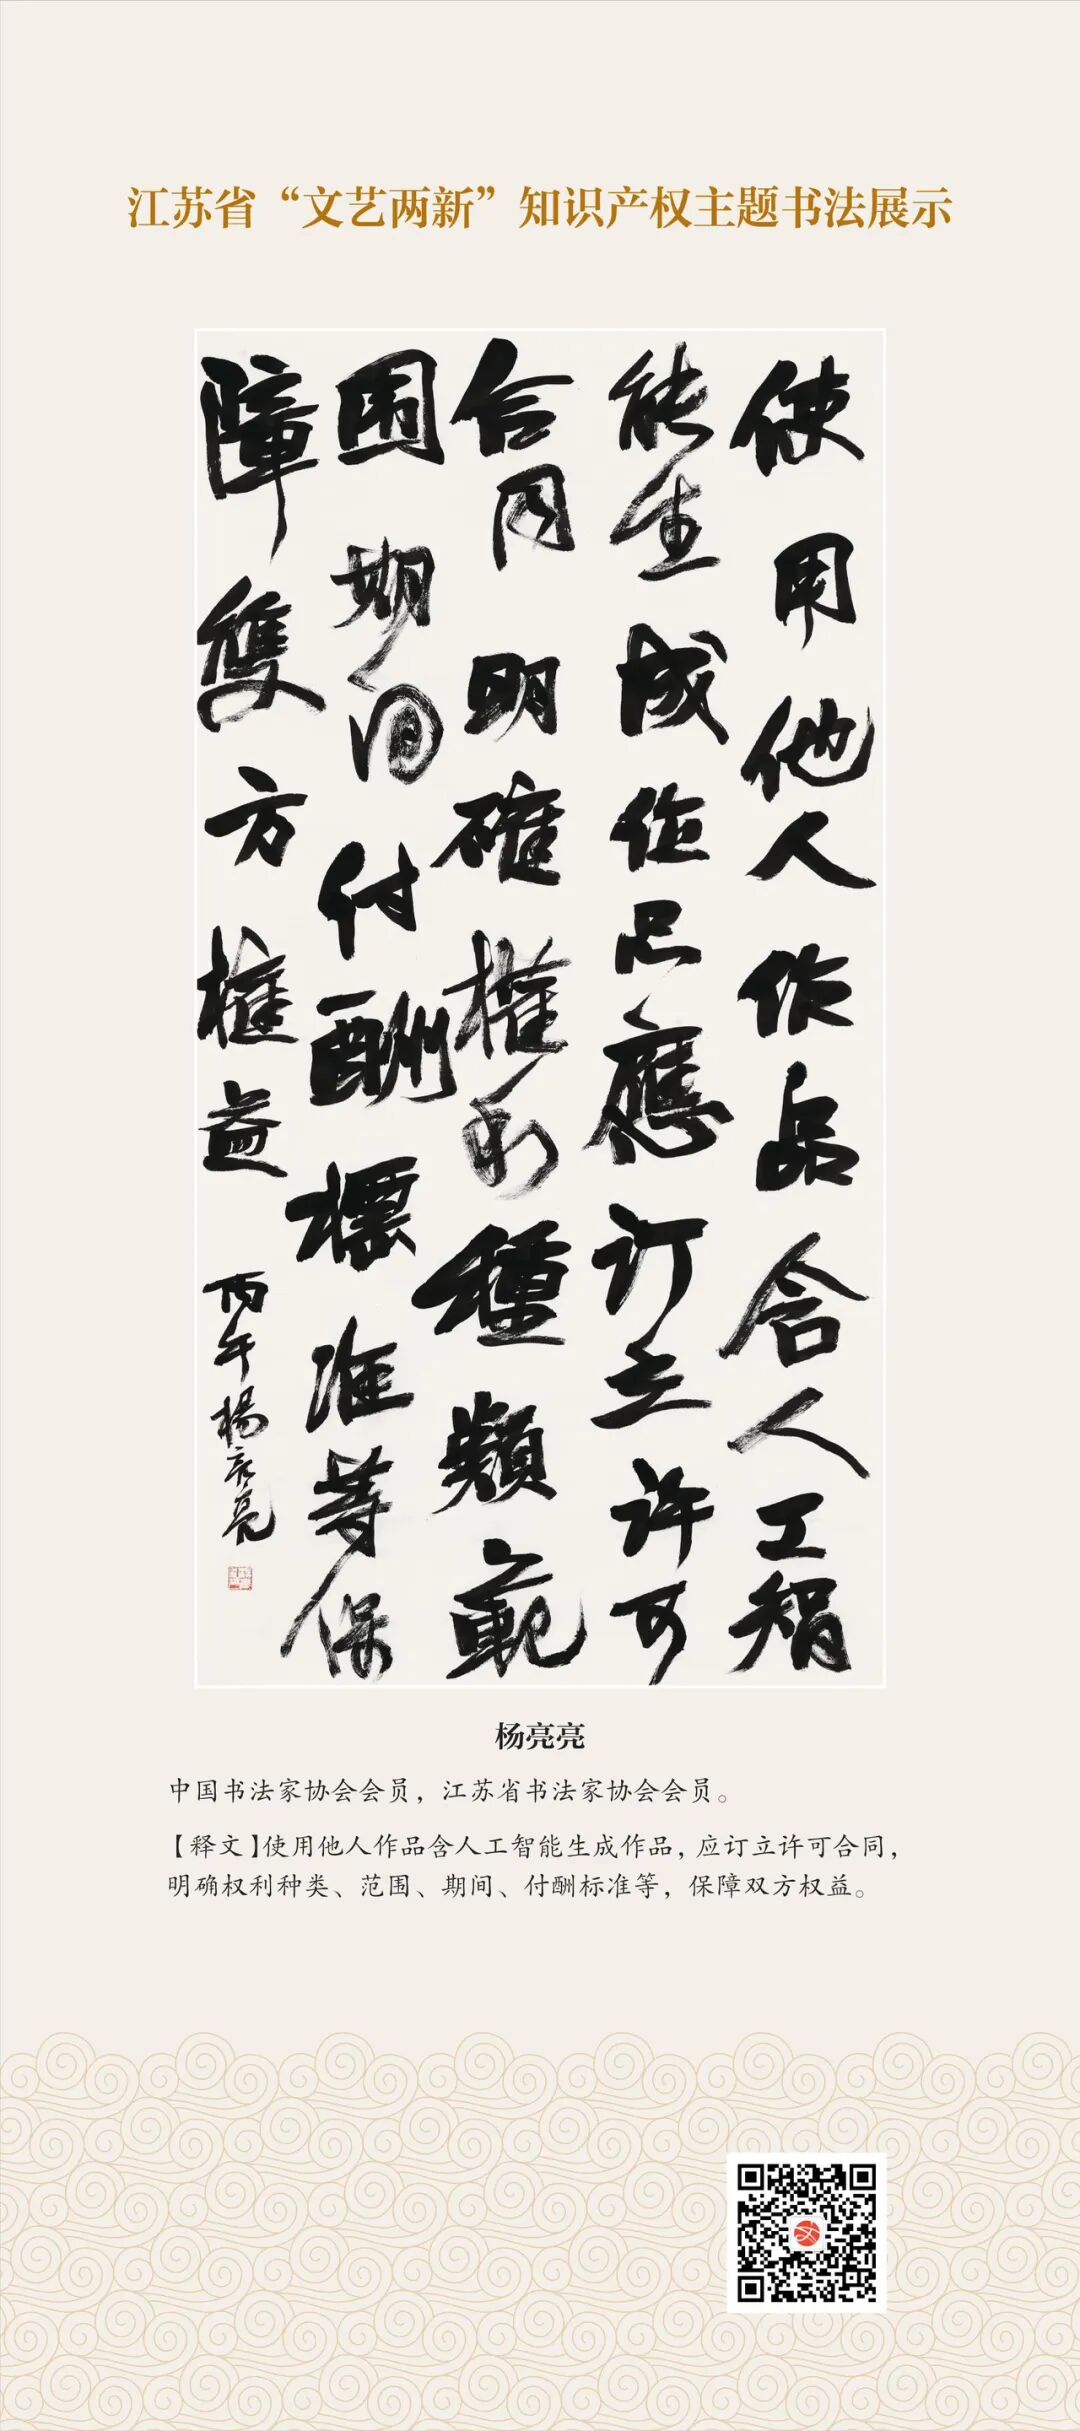 江苏省“文艺两新”知识产权主题书法展示
使用他人作品含人工智
能生成作品應订立许可
合同明確權利種類範
围期间付酬標准等保
障雙方權益
丙午楊亮亮
杨亮亮
中国书法家协会会员，江苏省书法家协会会员。
【释文】使用他人作品含人工智能生成作品，应订立许可合同，
明确权利种类、范围、期间、付酬标准等，保障双方权益。